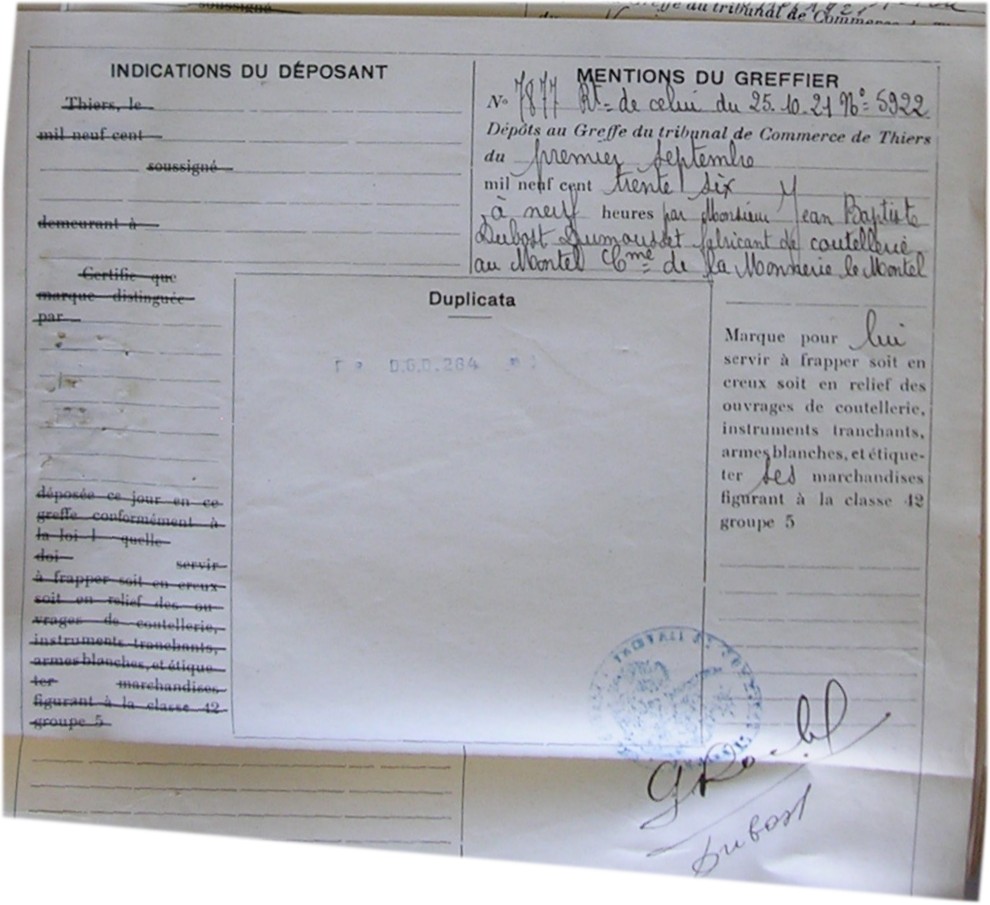 soussigné
Greffe du tribunal de Commerce de
INDICATIONS DU DÉPOSANT
Thiers, le
mil neuf cent
soussigné
demeurant à
Certifie que
marque distinguée
par
déposée ce jour en ce
greffe conformément à
la loi l quelle
doi servir
à frapper soit en creux
soit en relief des ou-
vrages de coutellerie,
instruments tranchants,
armes blanches, et étique-
ter marchandises
figurant à la classe 12
groupe 5
MENTIONS DU GREFFIER
No 7877 Rt= de celui du 25.10.21 No= 5922
Dépôts au Greffe du tribunal de Commerce de Thiers
du premier septembre
mil neuf cent trente six
à neuf heures par Monsieur Jean Baptiste
Dubost Dumousset fabricant de coutellerie
au Montel Cme de la Monnerie le Montel
Duplicata
D.G.D.284
Marque pour lui
servir à frapper soit en
creux soit en relief des
ouvrages de coutellerie,
instruments tranchants,
armes blanches, et étique-
ter ses marchandises
figurant à la classe 12
groupe 5
TRIBUNAL DE COMMERCE
Dubost